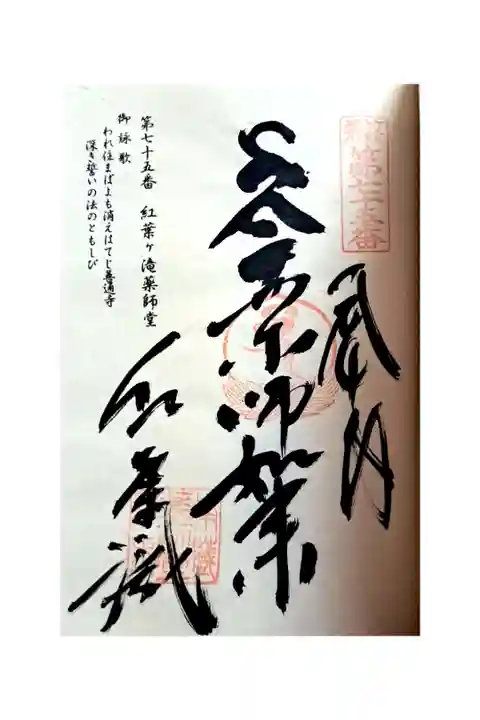 第七十五番
奉納
薬師如来
紅葉滝
第七十五番 紅葉ヶ滝薬師堂
御詠歌
われ住まばよも消えはてじ善通寺
深き誓いの法のともしび